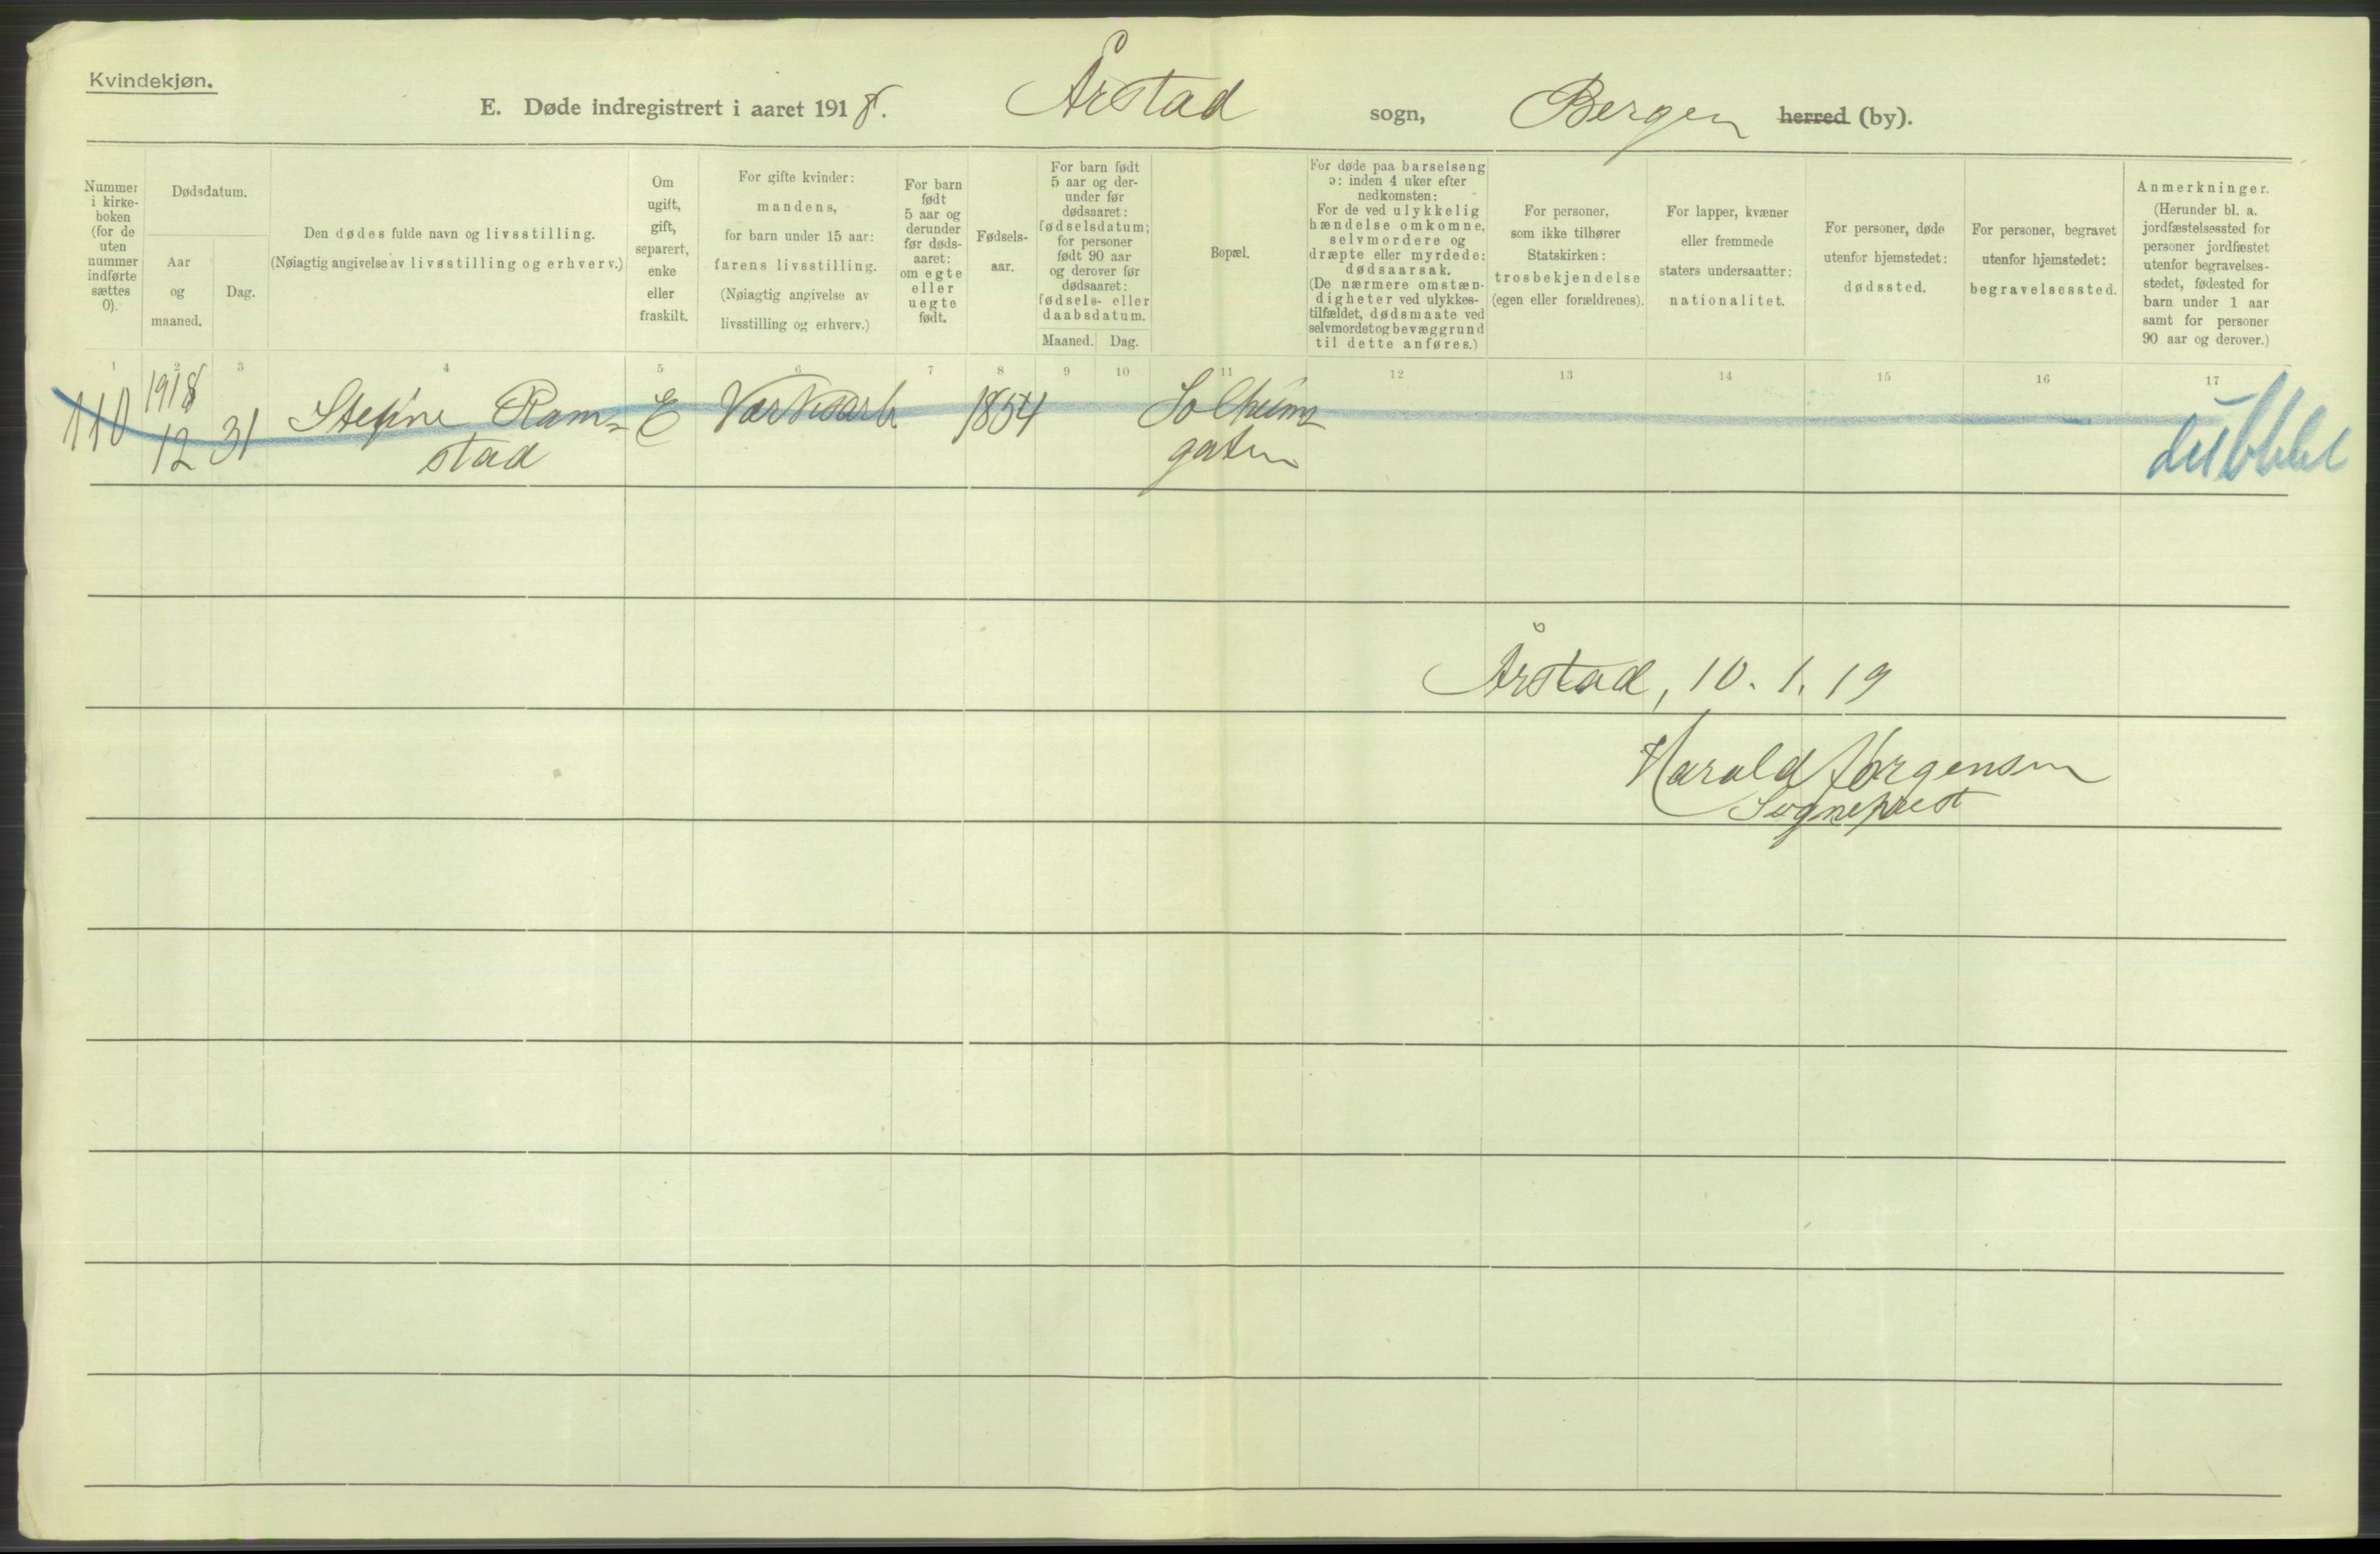 Kvindekjøn.
E. Døde indregistrert i aaret 1918. Årstad sogn, Bergen herred (by).
Nummer
i kirke-
boken
(for de
uten
nummer
indførte
sættes
0).
Dødsdatum.
Aar
og
maaned.
Dag.
Den dødes fulde navn og livsstilling.
(Nøiagtig angivelse av livsstilling og erhverv.)
Om
ugift,
gift,
separert,
enke
eller
fraskilt.
For gifte kvinder:
mandens,
for barn under 15 aar:
farens livsstilling.
(Nøiagtig angivelse av
livsstilling og erhverv.)
For barn
født
5 aar og
derunder
før døds-
aaret:
om egte
eller
uegte
født.
Fødsels-
aar.
For barn født
5 aar og der-
under før
dødsaaret:
fødselsdatum;
for personer
født 90 aar
og derover før
dødsaaret:
fødsels- eller
daabsdatum.
Maaned. Dag.
Bopæl.
For døde paa barselseng
ɔ: inden 4 uker efter
nedkomsten:
For de ved ulykkelig
hændelse omkomne,
selvmordere og
dræpte eller myrdede:
dødsaarsak.
(De nærmere omstæn-
digheter ved ulykkes-
tilfældet, dødsmaate ved
selvmordet og bevæggrund
til dette anføres.)
For personer,
som ikke tilhører
Statskirken:
trosbekjendelse
(egen eller forældrenes).
For lapper, kvæner
eller fremmede
staters undersaatter:
nationalitet.
For personer, døde
utenfor hjemstedet:
dødssted.
For personer, begravet
utenfor hjemstedet:
begravelsessted.
Anmerkninger.
(Herunder bl. a.
jordfæstelsessted for
personer jordfæstet
utenfor begravelses-
stedet, fødested for
barn under 1 aar
samt for personer
90 aar og derover.)
1 2 3 4 5 6 7 8 9 10 11 12 13 14 15 16 17
1918
110 12 31 Stefine Ram= E Værksarb. 1854 Solheims
stad gaten
Årstad, 10. 1. 19
Harald Jørgensen
Sogneprest